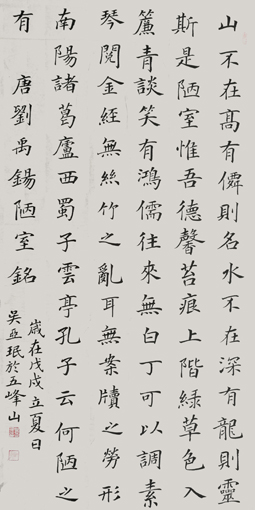 山不在高有僊則名水不在深有龍則靈
斯是陋室惟吾德馨苔痕上階綠草色入
簾青談笑有鴻儒往來無白丁可以調素
琴閱金經無絲竹之亂耳無案牘之勞形
南陽諸葛廬西蜀子雲亭孔子云何陋之
有 唐劉禹錫陋室銘
歲在戊戌立夏日
吳亞珉於五峰山